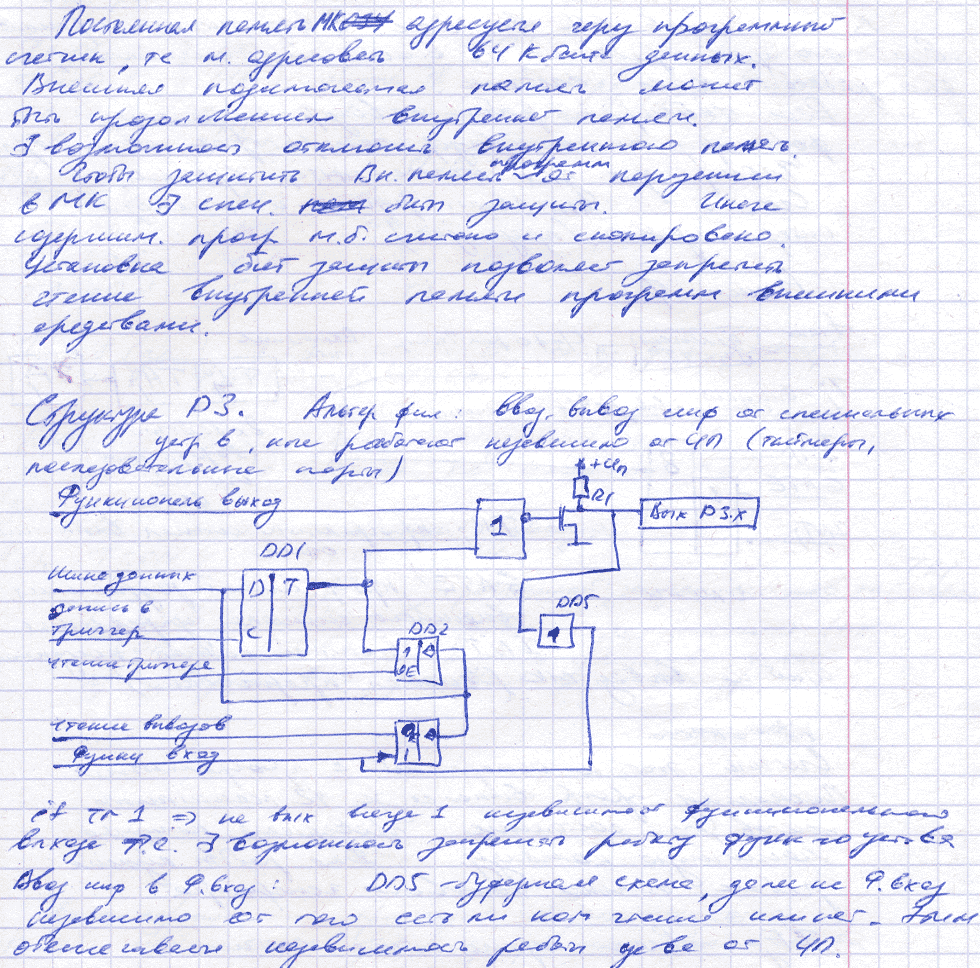 Постоянная память МК адресуется через программный
счетчик, те м. адресовать 64 Кбайт данных.
Внешняя подключаемая память может
быть продолжением внутренней памяти.
∃ возможность отключить внутреннюю память.
Чтобы защитить Вн. память программ от
в МК ∃ спец. биты защиты. Иначе
содержим. прогр м.б. считано и скопировано.
Установка бит защиты позволяет запретить
чтение внутренней памяти программ внешними
средствами.
Структура P3. Альтер фун: Ввод, вывод инф от специальных
устр в, кые работают независимо от ЦП (таймеры,
последовательные порты)
+Uп
Функционель выход
R1
1
Вых P3.X
DD1
Шина данных
D T
запись в
триггер
C
DD5
1
DD2
чтение триггера
1
OE
чтение выводов
Функц вход
1
if Тг 1 => на вых 1 независимо от функционального
выхода т.е. ∃ возможность запретить работу функ-го устр-ва
Ввод инф в Ф.вход: DD5 - буферная схема, далее на Ф.вход
независимо от того есть ли ком чтение или нет. Этим
обеспечивается независимость работы устр-ва от ЦП.